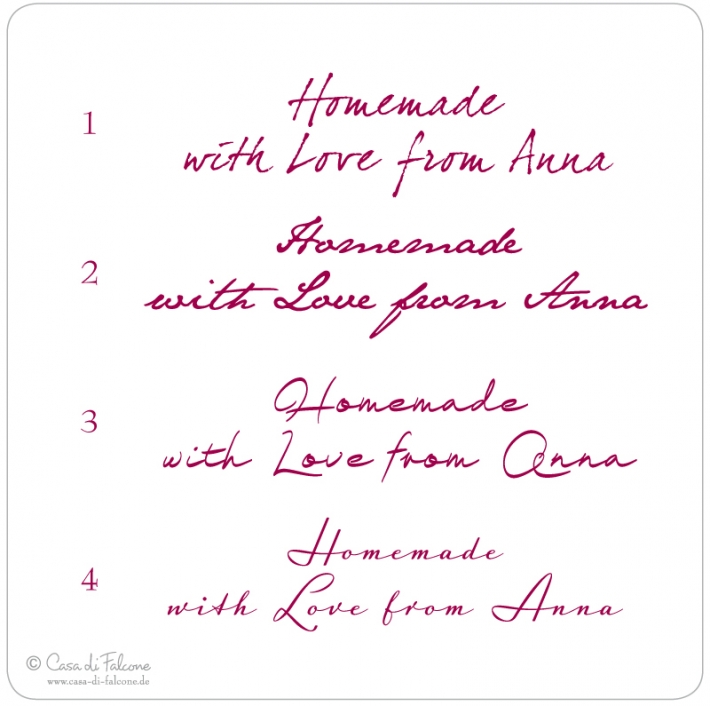 1
Homemade
with Love from Anna
2
Homemade
with Love from Anna
3
Homemade
with Love from Anna
4
Homemade
with Love from Anna
© Casa di Falcone
www.casa-di-falcone.de